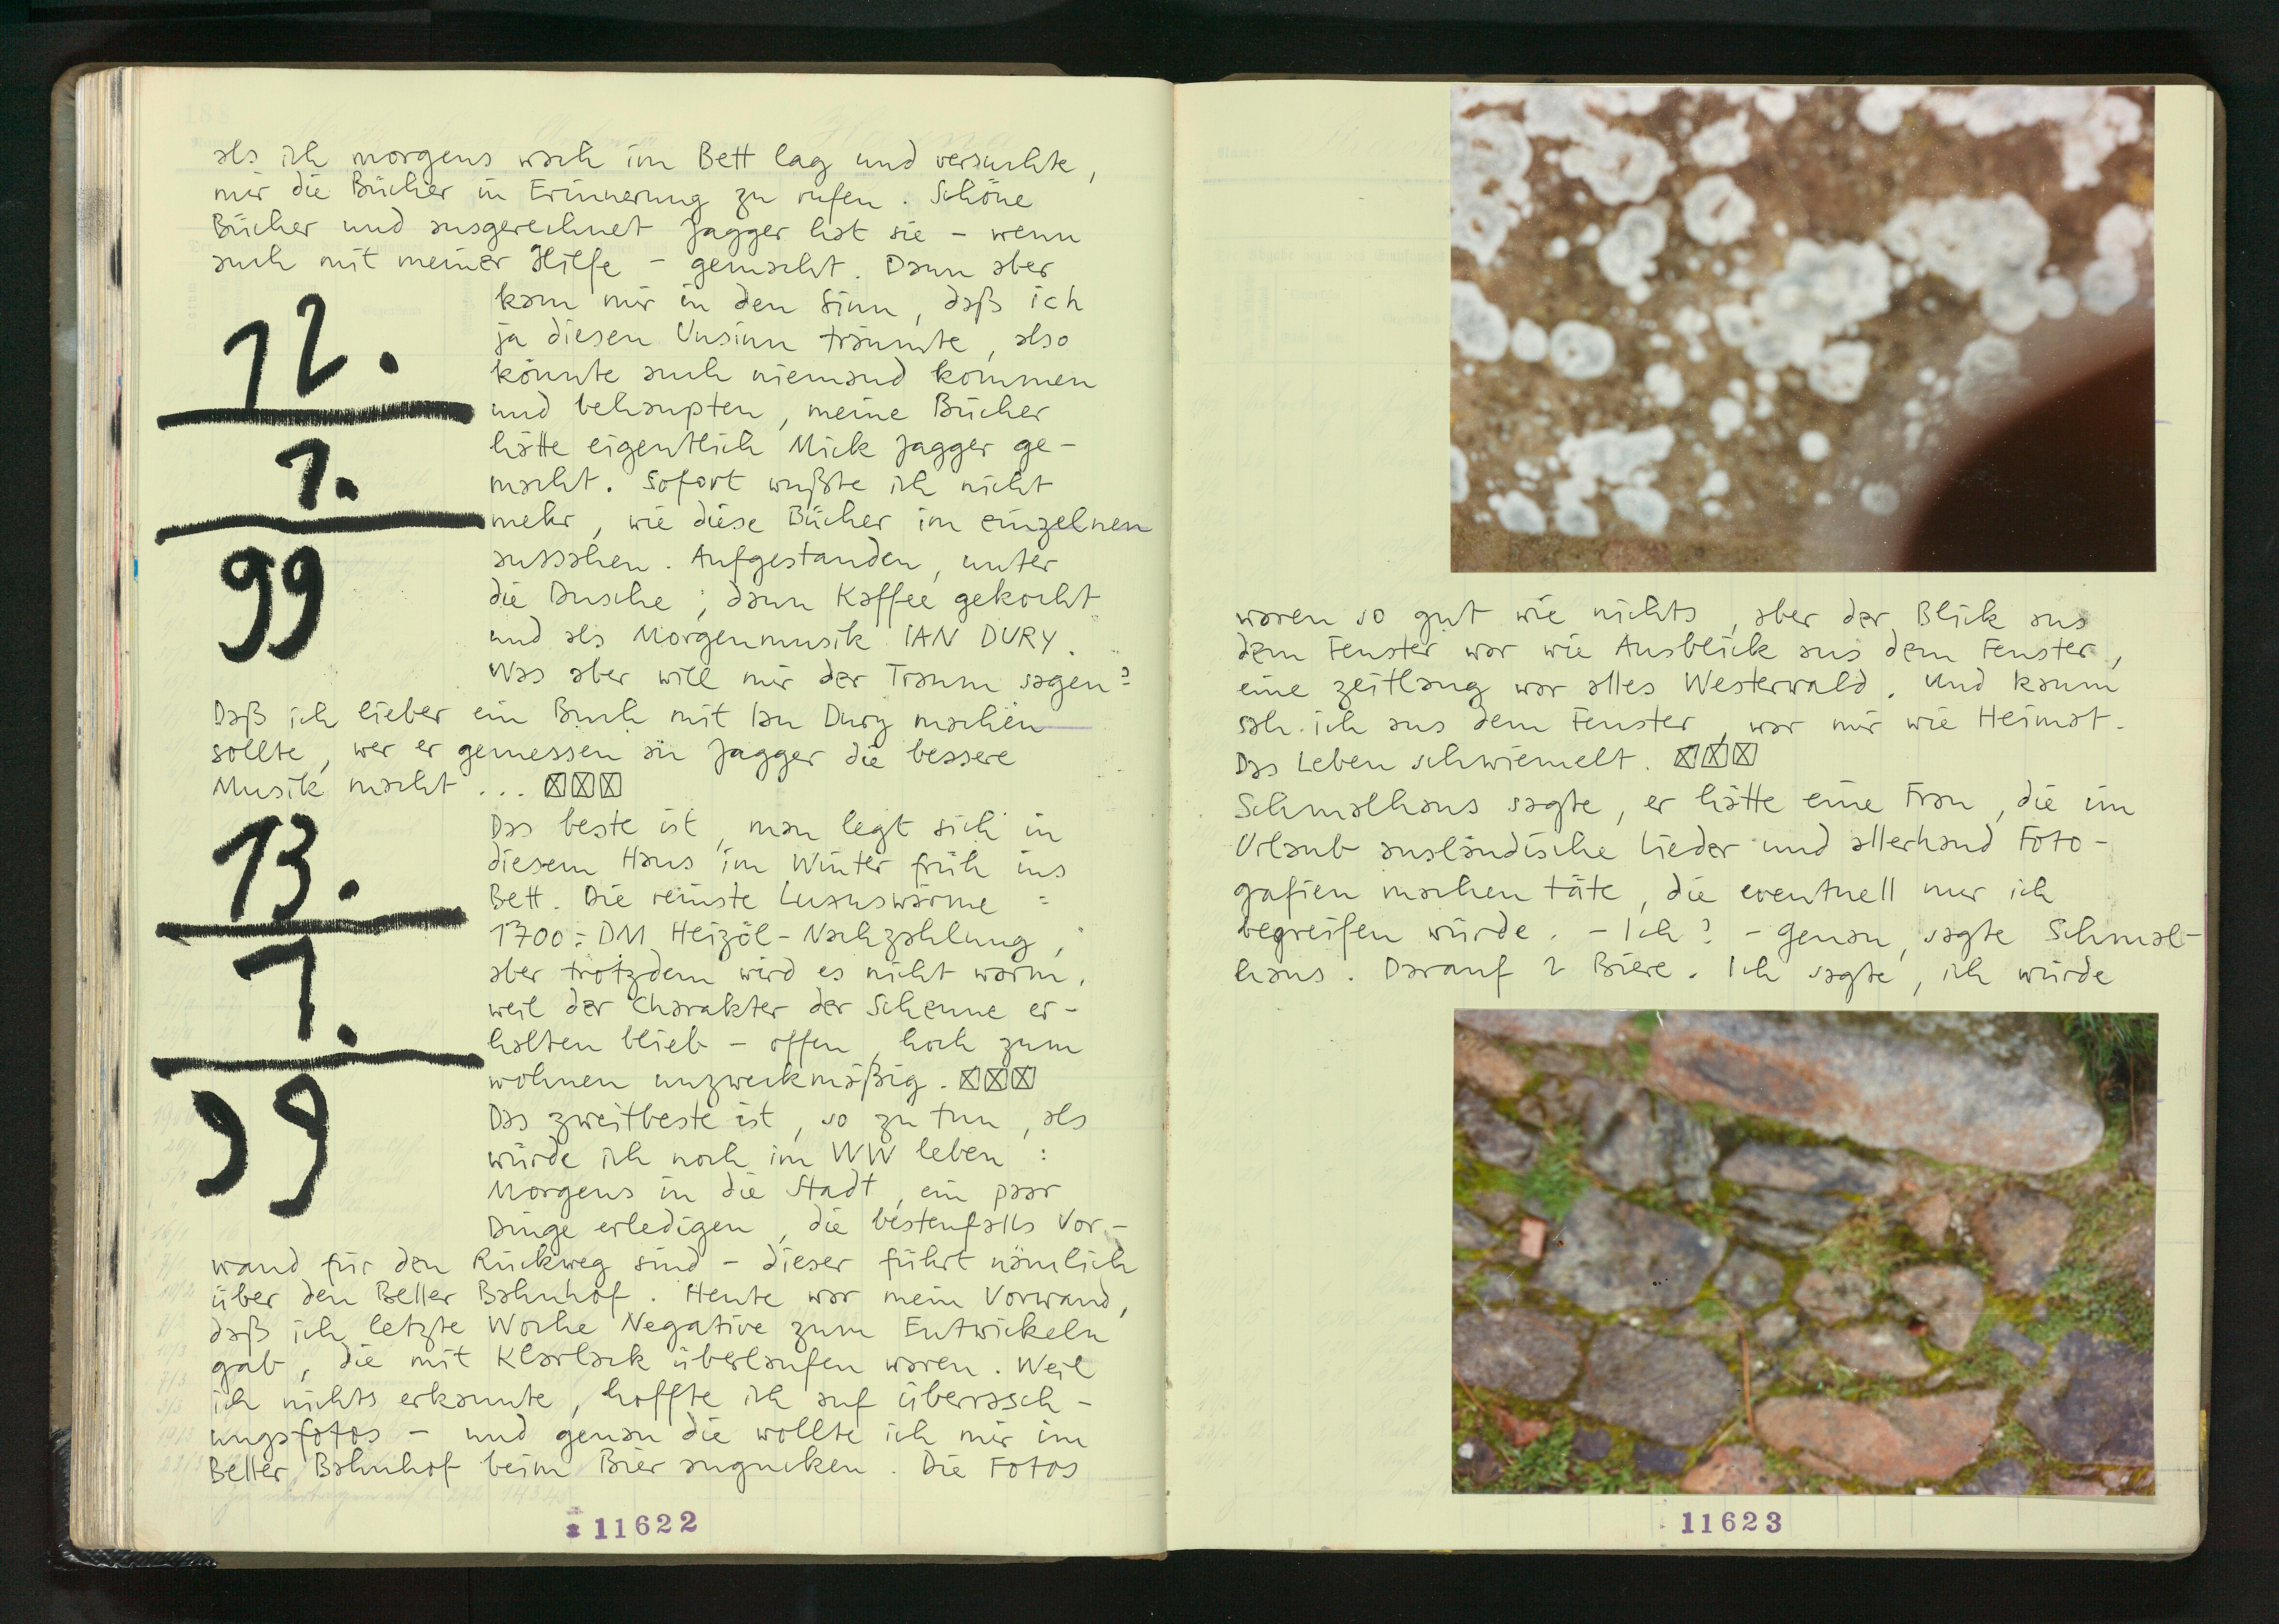 als ich morgens wach im Bett lag und versuchte,
mir die Bücher in Erinnerung zu rufen. Schöne
Bücher und ausgerechnet Jagger hat sie – wenn
auch mit meiner Hilfe – gemacht. Dann aber
kam mir in den Sinn, daß ich
ja diesen Unsinn träumte, also
könnte auch niemand kommen
und behaupten, meine Bücher
hätte eigentlich Mick Jagger ge-
macht. Sofort wußte ich nicht
mehr, wie diese Bücher im einzelnen
aussahen. Aufgestanden, unter
die Dusche; dann Kaffee gekocht
und als Morgenmusik IAN DURY.
Was aber will mir der Traum sagen?
12.
1.
99
Daß ich lieber ein Buch mit Ian Dury machen
sollte, wer er gemessen an Jagger die bessere
Musik macht ... ☒☒☒
13.
1.
99
Das beste ist, man legt sich in
diesem Haus im Winter früh ins
Bett. Die reinste Luxuswärme =
1700,- DM Heizöl-Nachzahlung,
aber trotzdem wird es nicht warm,
weil der Charakter der Scheune er-
halten blieb – offen, hoch zum
wohnen unzweckmäßig. ☒☒☒
Das zweitbeste ist, so zu tun, als
würde ich noch im WW leben :
Morgens in die Stadt, ein paar
Dinge erledigen, die bestenfalls Vor-
wand für den Rückweg sind – dieser führt nämlich
über den Beller Bahnhof. Heute war mein Vorwand,
daß ich letzte Woche Negative zum Entwickeln
gab, die mit Klarlack überlaufen waren. Weil
ich nichts erkannte, hoffte ich auf überrasch-
ungsfotos – und genau die wollte ich mir im
Beller Bahnhof beim Bier angucken. Die Fotos
11622
waren so gut wie nichts, aber der Blick aus
dem Fenster war wie Ausblick aus dem Fenster,
eine zeitlang war alles Westerwald. Und kaum
sah ich aus dem Fenster, war mir wie Heimat.
Das Leben schwiemelt. ☒☒☒
Schmalhaus sagte, er hätte eine Frau, die im
Urlaub ausländische Lieder und allerhand Foto-
gafien machen täte, die eventuell nur ich
begreifen würde. – Ich? – Genau, sagte Schmal-
haus. Darauf 2 Biere. Ich sagte, ich würde
11623